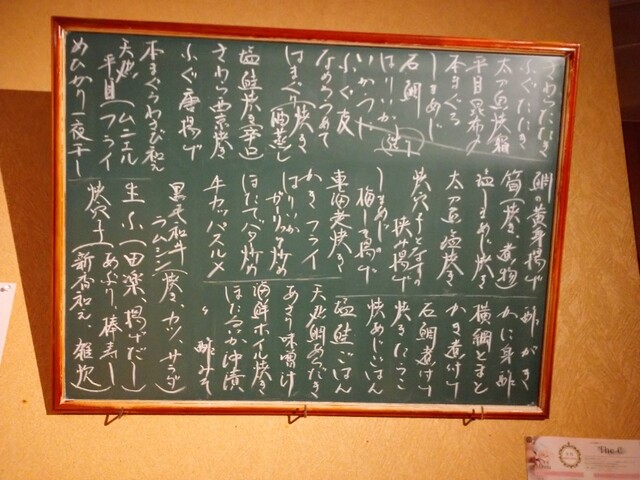 さわらたたき
ふぐたたき
太刀魚焼霜
平目昆布〆
本まぐろ
しまあじ
石鯛
はりいか
いかつ
ふぐ皮
なめろう
はまぐり(焼き・酒蒸し)
塩鮭焼き 辛口
さわら西京焼き
ふぐ唐揚げ
本まぐろわさび和え
平目(ムニエル・フライ)
めひかり一夜干し
鯛の黄身揚げ
筍(焼き・煮物)
塩しまあじ焼き
太刀魚塩焼き
焼穴子となすの
挟み揚げ
しまあじ
梅しそ揚げ
かきフライ
はりいか
ほたて
牛カッパスルメ
黒毛和牛(焼き、カツ、サラダ)
ラムシン
生ふ(田楽、揚げだし)
あぶり、棒寿し
焼穴子(新香和え、雑炊)
酢がき
かに身酢
横綱とまと
かき煮付け
石鯛煮付け
焼きたらこ
焼めじごはん
塩鮭ごはん
あさり味噌汁
海鮮ホイル焼き
ほたるいか沖漬
〃 酢みそ